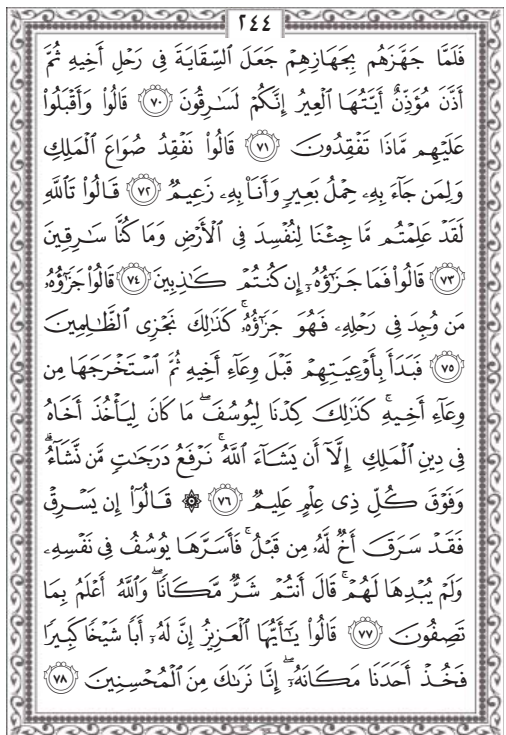 ٢٤٤
فَلَمَّا جَهَّزَهُم بِجَهَازِهِمْ جَعَلَ ٱلسِّقَايَةَ فِى رَحْلِ أَخِيهِ ثُمَّ
أَذَّنَ مُؤَذِّنٌ أَيَّتُهَا ٱلْعِيرُ إِنَّكُمْ لَسَـٰرِقُونَ ٧٠ قَالُوا۟ وَأَقْبَلُوا۟
عَلَيْهِم مَّاذَا تَفْقِدُونَ ٧١ قَالُوا۟ نَفْقِدُ صُوَاعَ ٱلْمَلِكِ
وَلِمَن جَآءَ بِهِۦ حِمْلُ بَعِيرٍ وَأَنَا۠ بِهِۦ زَعِيمٌ ٧٢ قَالُوا۟ تَٱللَّهِ
لَقَدْ عَلِمْتُم مَّا جِئْنَا لِنُفْسِدَ فِى ٱلْأَرْضِ وَمَا كُنَّا سَـٰرِقِينَ
٧٣ قَالُوا۟ فَمَا جَزَٰٓؤُهُۥٓ إِن كُنتُمْ كَـٰذِبِينَ ٧٤ قَالُوا۟ جَزَٰٓؤُهُۥ
مَن وُجِدَ فِى رَحْلِهِۦ فَهُوَ جَزَٰٓؤُهُۥ ۚ كَذَٰلِكَ نَجْزِى ٱلظَّـٰلِمِينَ
٧٥ فَبَدَأَ بِأَوْعِيَتِهِمْ قَبْلَ وِعَآءِ أَخِيهِ ثُمَّ ٱسْتَخْرَجَهَا مِن
وِعَآءِ أَخِيهِ ۚ كَذَٰلِكَ كِدْنَا لِيُوسُفَ ۖ مَا كَانَ لِيَأْخُذَ أَخَاهُ
فِى دِينِ ٱلْمَلِكِ إِلَّآ أَن يَشَآءَ ٱللَّهُ ۚ نَرْفَعُ دَرَجَـٰتٍ مَّن نَّشَآءُ ۗ
وَفَوْقَ كُلِّ ذِى عِلْمٍ عَلِيمٌ ٧٦ ۞ قَالُوٓا۟ إِن يَسْرِقْ
فَقَدْ سَرَقَ أَخٌ لَّهُۥ مِن قَبْلُ ۚ فَأَسَرَّهَا يُوسُفُ فِى نَفْسِهِۦ
وَلَمْ يُبْدِهَا لَهُمْ ۚ قَالَ أَنتُمْ شَرٌّ مَّكَانًا ۖ وَٱللَّهُ أَعْلَمُ بِمَا
تَصِفُونَ ٧٧ قَالُوا۟ يَـٰٓأَيُّهَا ٱلْعَزِيزُ إِنَّ لَهُۥٓ أَبًا شَيْخًا كَبِيرًا
فَخُذْ أَحَدَنَا مَكَانَهُۥٓ ۖ إِنَّا نَرَىٰكَ مِنَ ٱلْمُحْسِنِينَ ٧٨